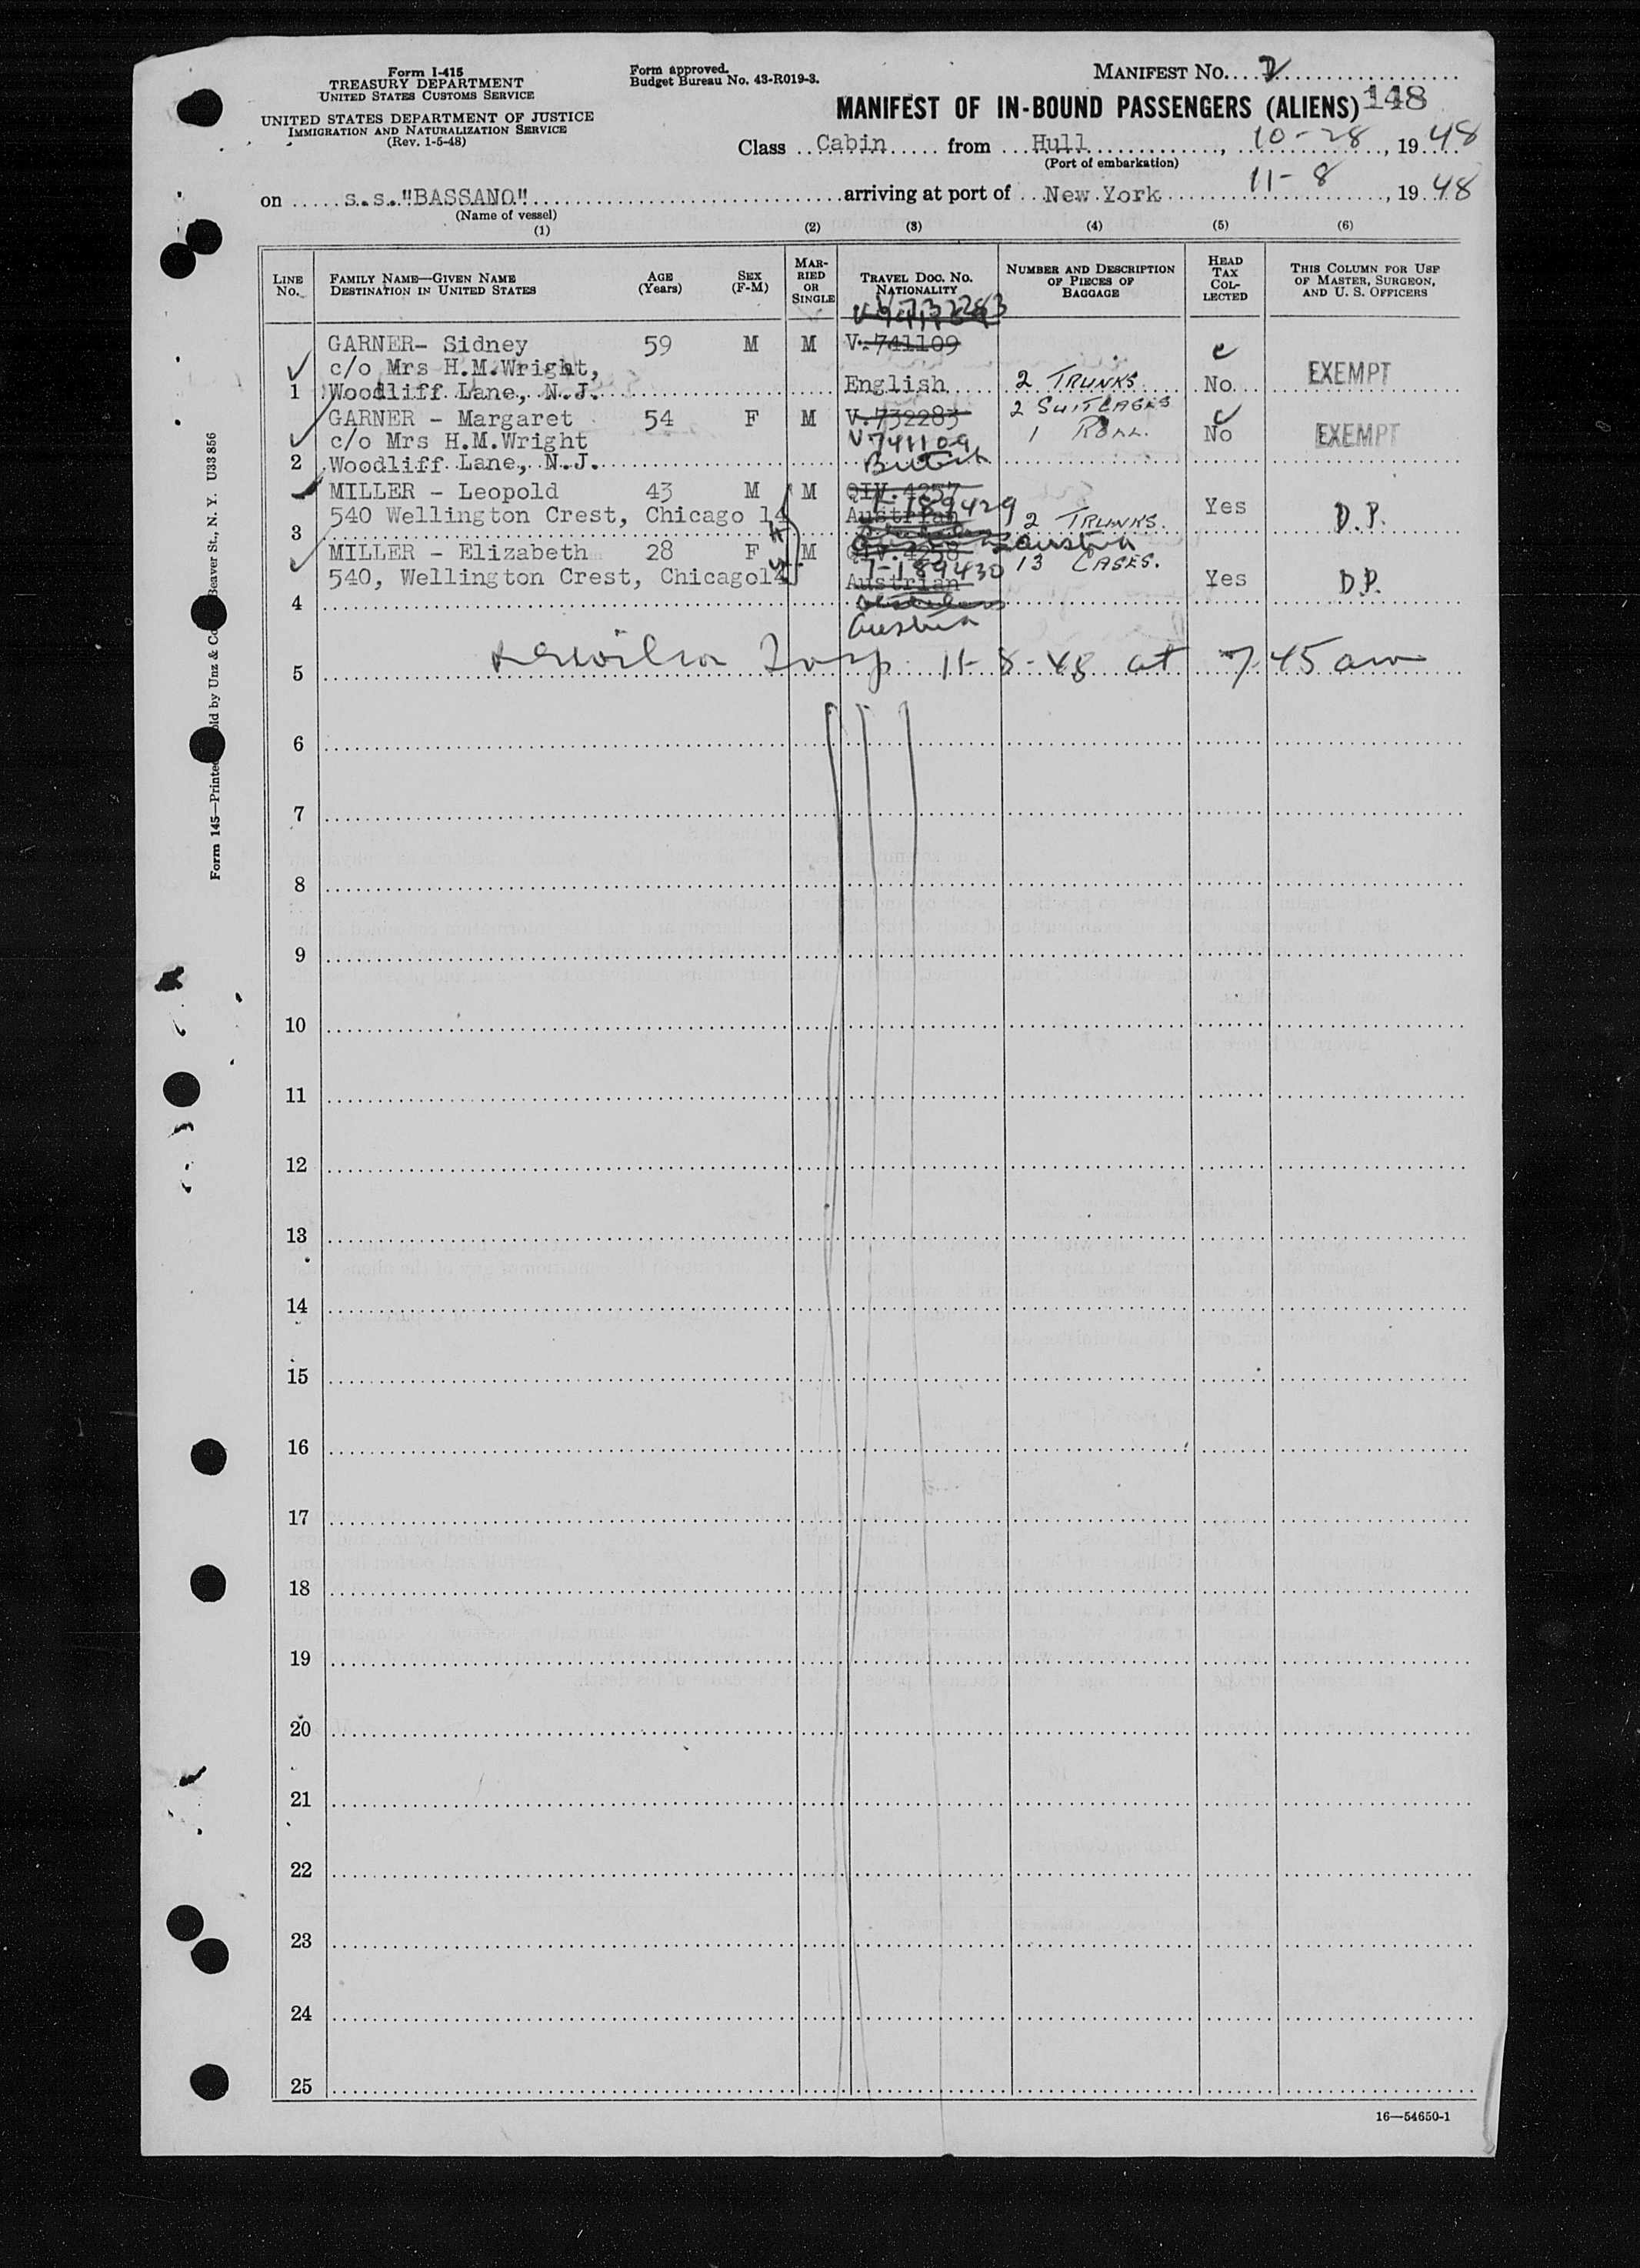 Form I-415
TREASURY DEPARTMENT
UNITED STATES CUSTOMS SERVICE
UNITED STATES DEPARTMENT OF JUSTICE
IMMIGRATION AND NATURALIZATION SERVICE
(Rev. 1-5-48)
Form approved.
Budget Bureau No. 43-R019-3.
MANIFEST NO.
MANIFEST OF IN-BOUND PASSENGERS (ALIENS) 148
Class Cabin from Hull, 10-28, 1948
(Port of embarkation)
on s.s."BASSANO" arriving at port of New York 11-8, 1948
(Name of vessel)
(1) (2) (3) (4) (5) (6)
LINE No. FAMILY NAME—GIVEN NAME DESTINATION IN UNITED STATES AGE (Years) SEX (F-M) MARRIED OR SINGLE TRAVEL DOC. NO. NATIONALITY NUMBER AND DESCRIPTION OF PIECES OF BAGGAGE HEAD TAX COLLECTED THIS COLUMN FOR USE OF MASTER, SURGEON, AND U. S. OFFICERS
V732283
GARNER- Sidney 59 M M V.741109
c/o Mrs H.M.Wright, EXEMPT
1 Woodliff Lane, N.J. English 2 TRUNKS No
GARNER - Margaret 54 F M V.732283 2 SUITCASES
c/o Mrs H.M.Wright V741109 1 ROLL. No EXEMPT
2 Woodliff Lane, N.J. British
MILLER - Leopold 43 M M QIV.4257
540 Wellington Crest, Chicago 14 T-189429 Austrian 2 TRUNKS. Yes D.P.
3 Austria
MILLER - Elizabeth 28 F M QIV.4258 13 CASES.
T-189430
540, Wellington Crest, Chicago14 Austrian Yes D.P.
4
Austria
5 Insp 11-8-48 at 7-45 am
6
7
8
9
10
11
12
13
14
15
16
17
18
19
20
21
22
23
24
25
16—54650-1
Form 145—Printed Sold by Unz & Co Beaver St., N. Y. U33 856